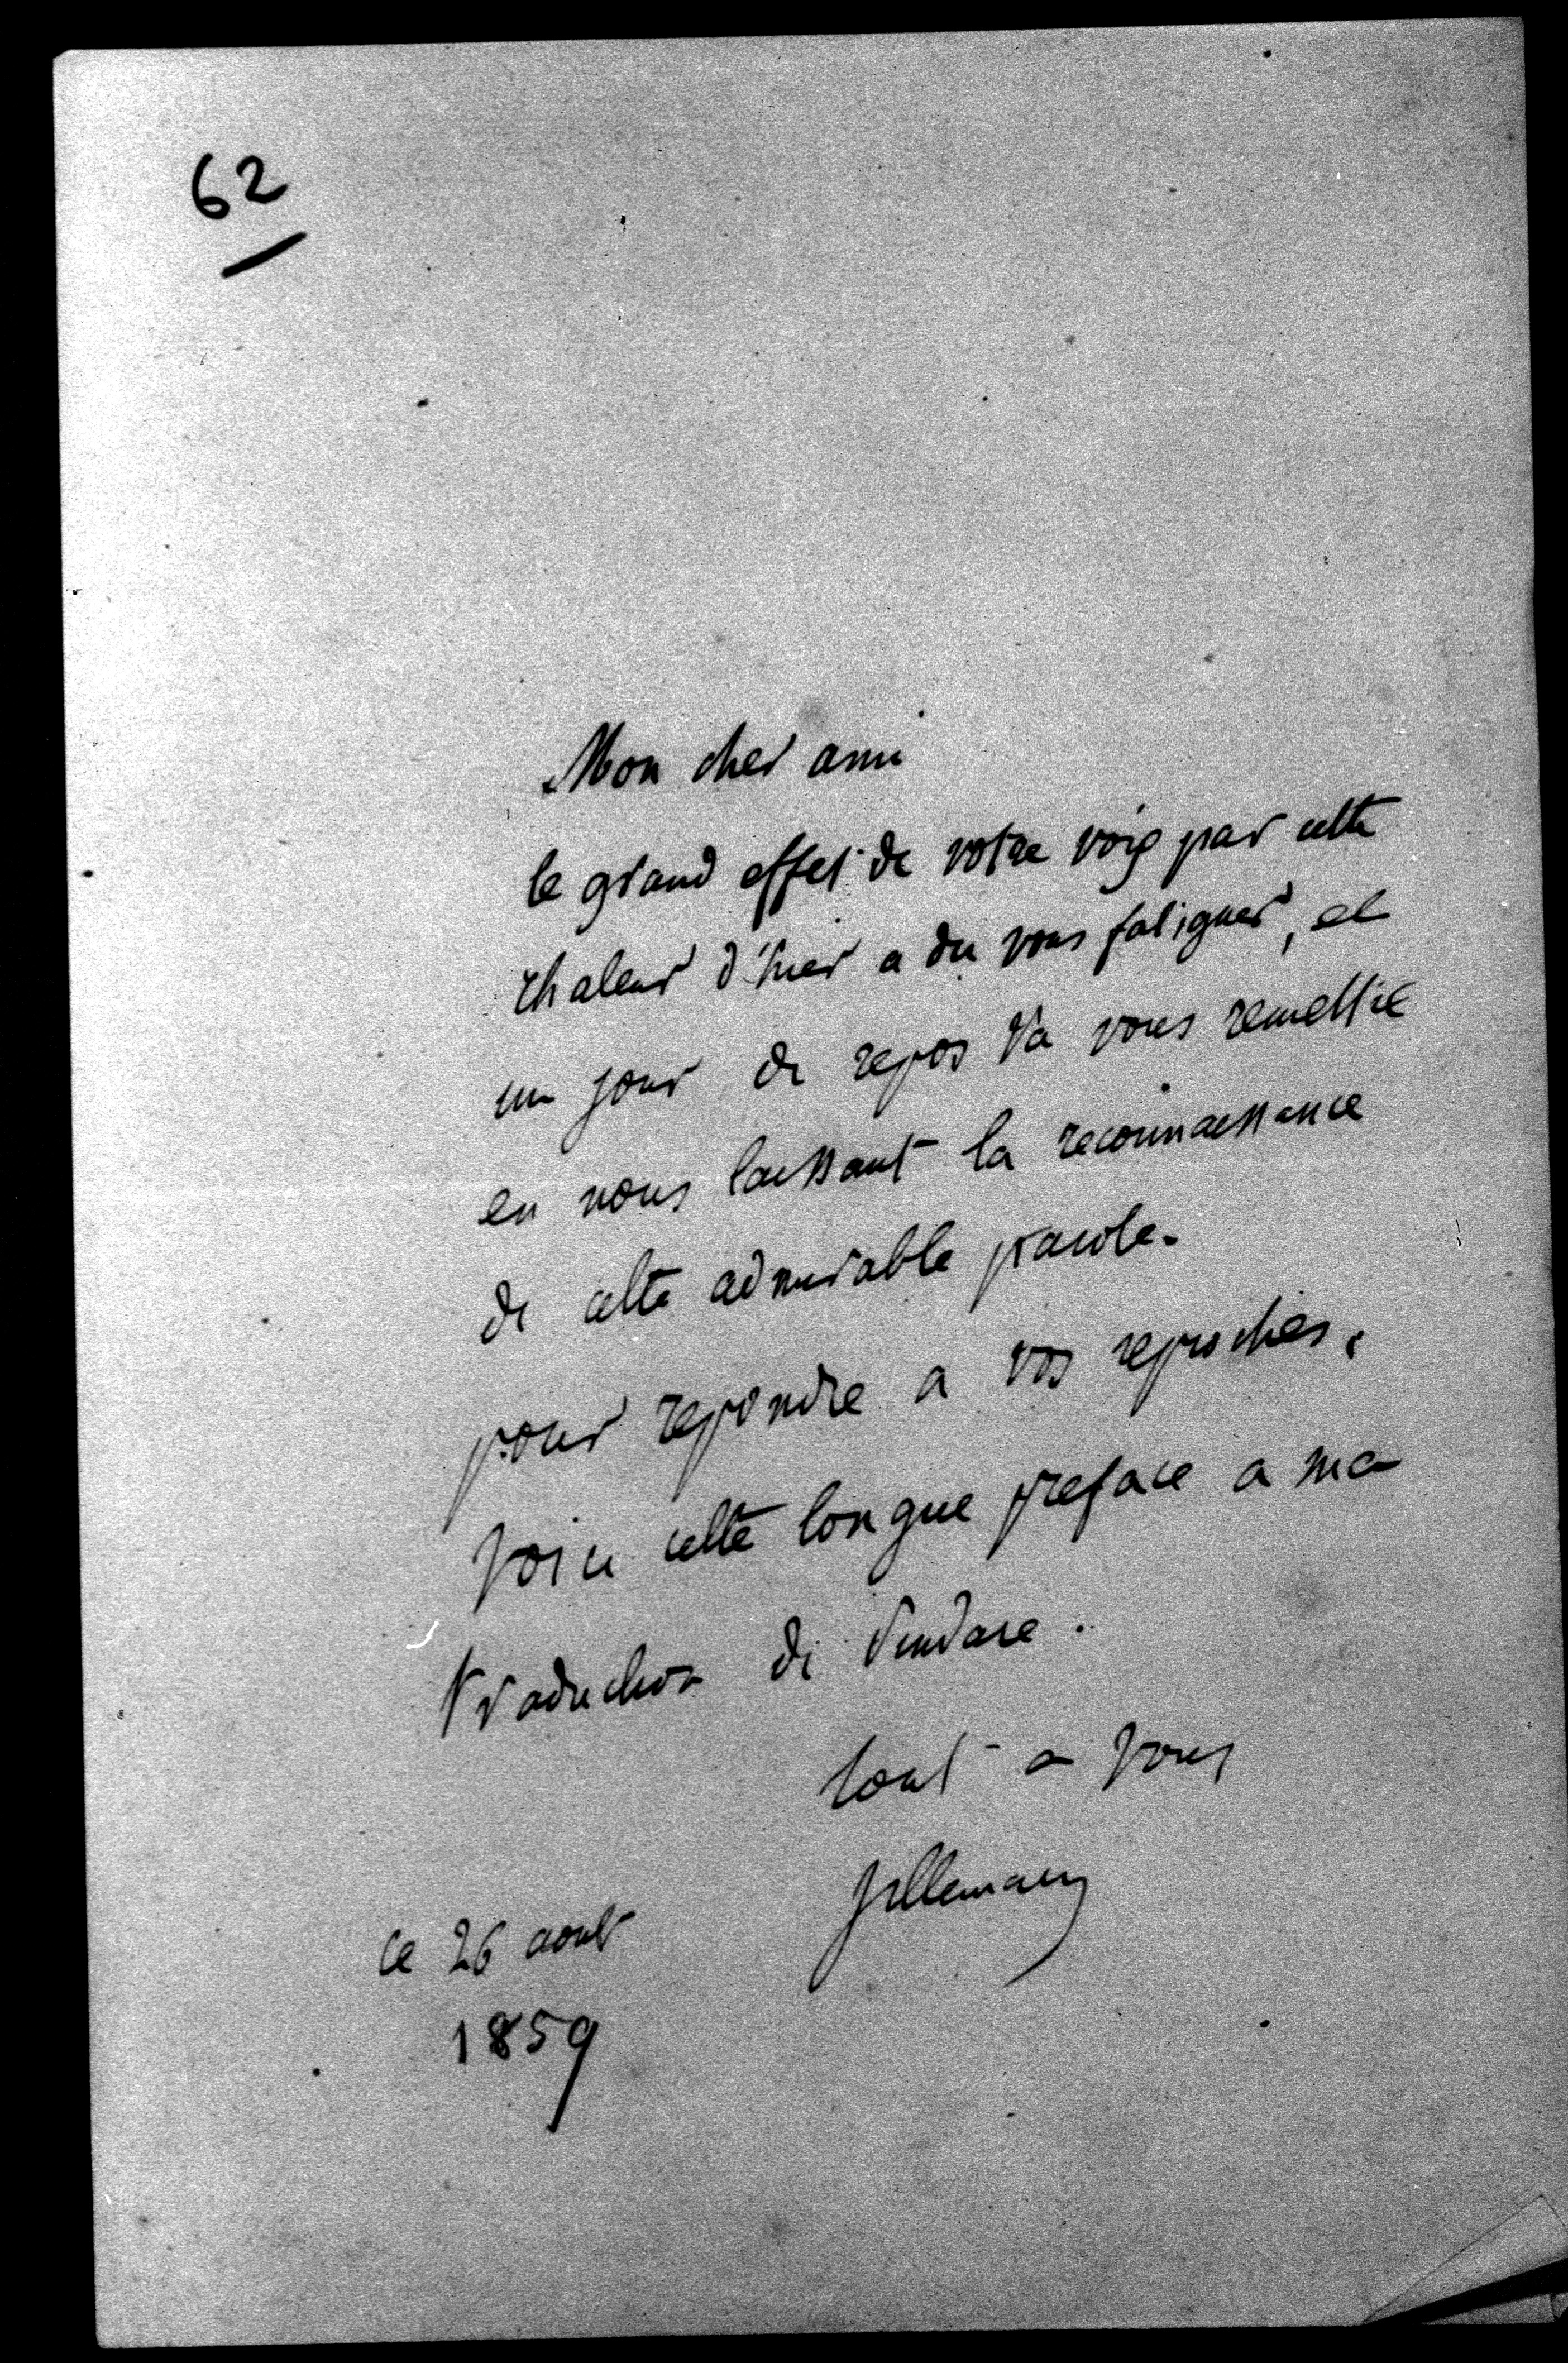 62
Mon cher ami
le grand effet de votre voix par cette
chaleur d'hier a du vous fatiguer, et
un jour de repos va vous remettre
en nous laissant la reconnaissance
de cette admirable parole.
pour repondre a vos reproches,
voici cette longue preface a ma
traduction de Pindare.
tout a vous
Villemain
ce 26 aout
1859